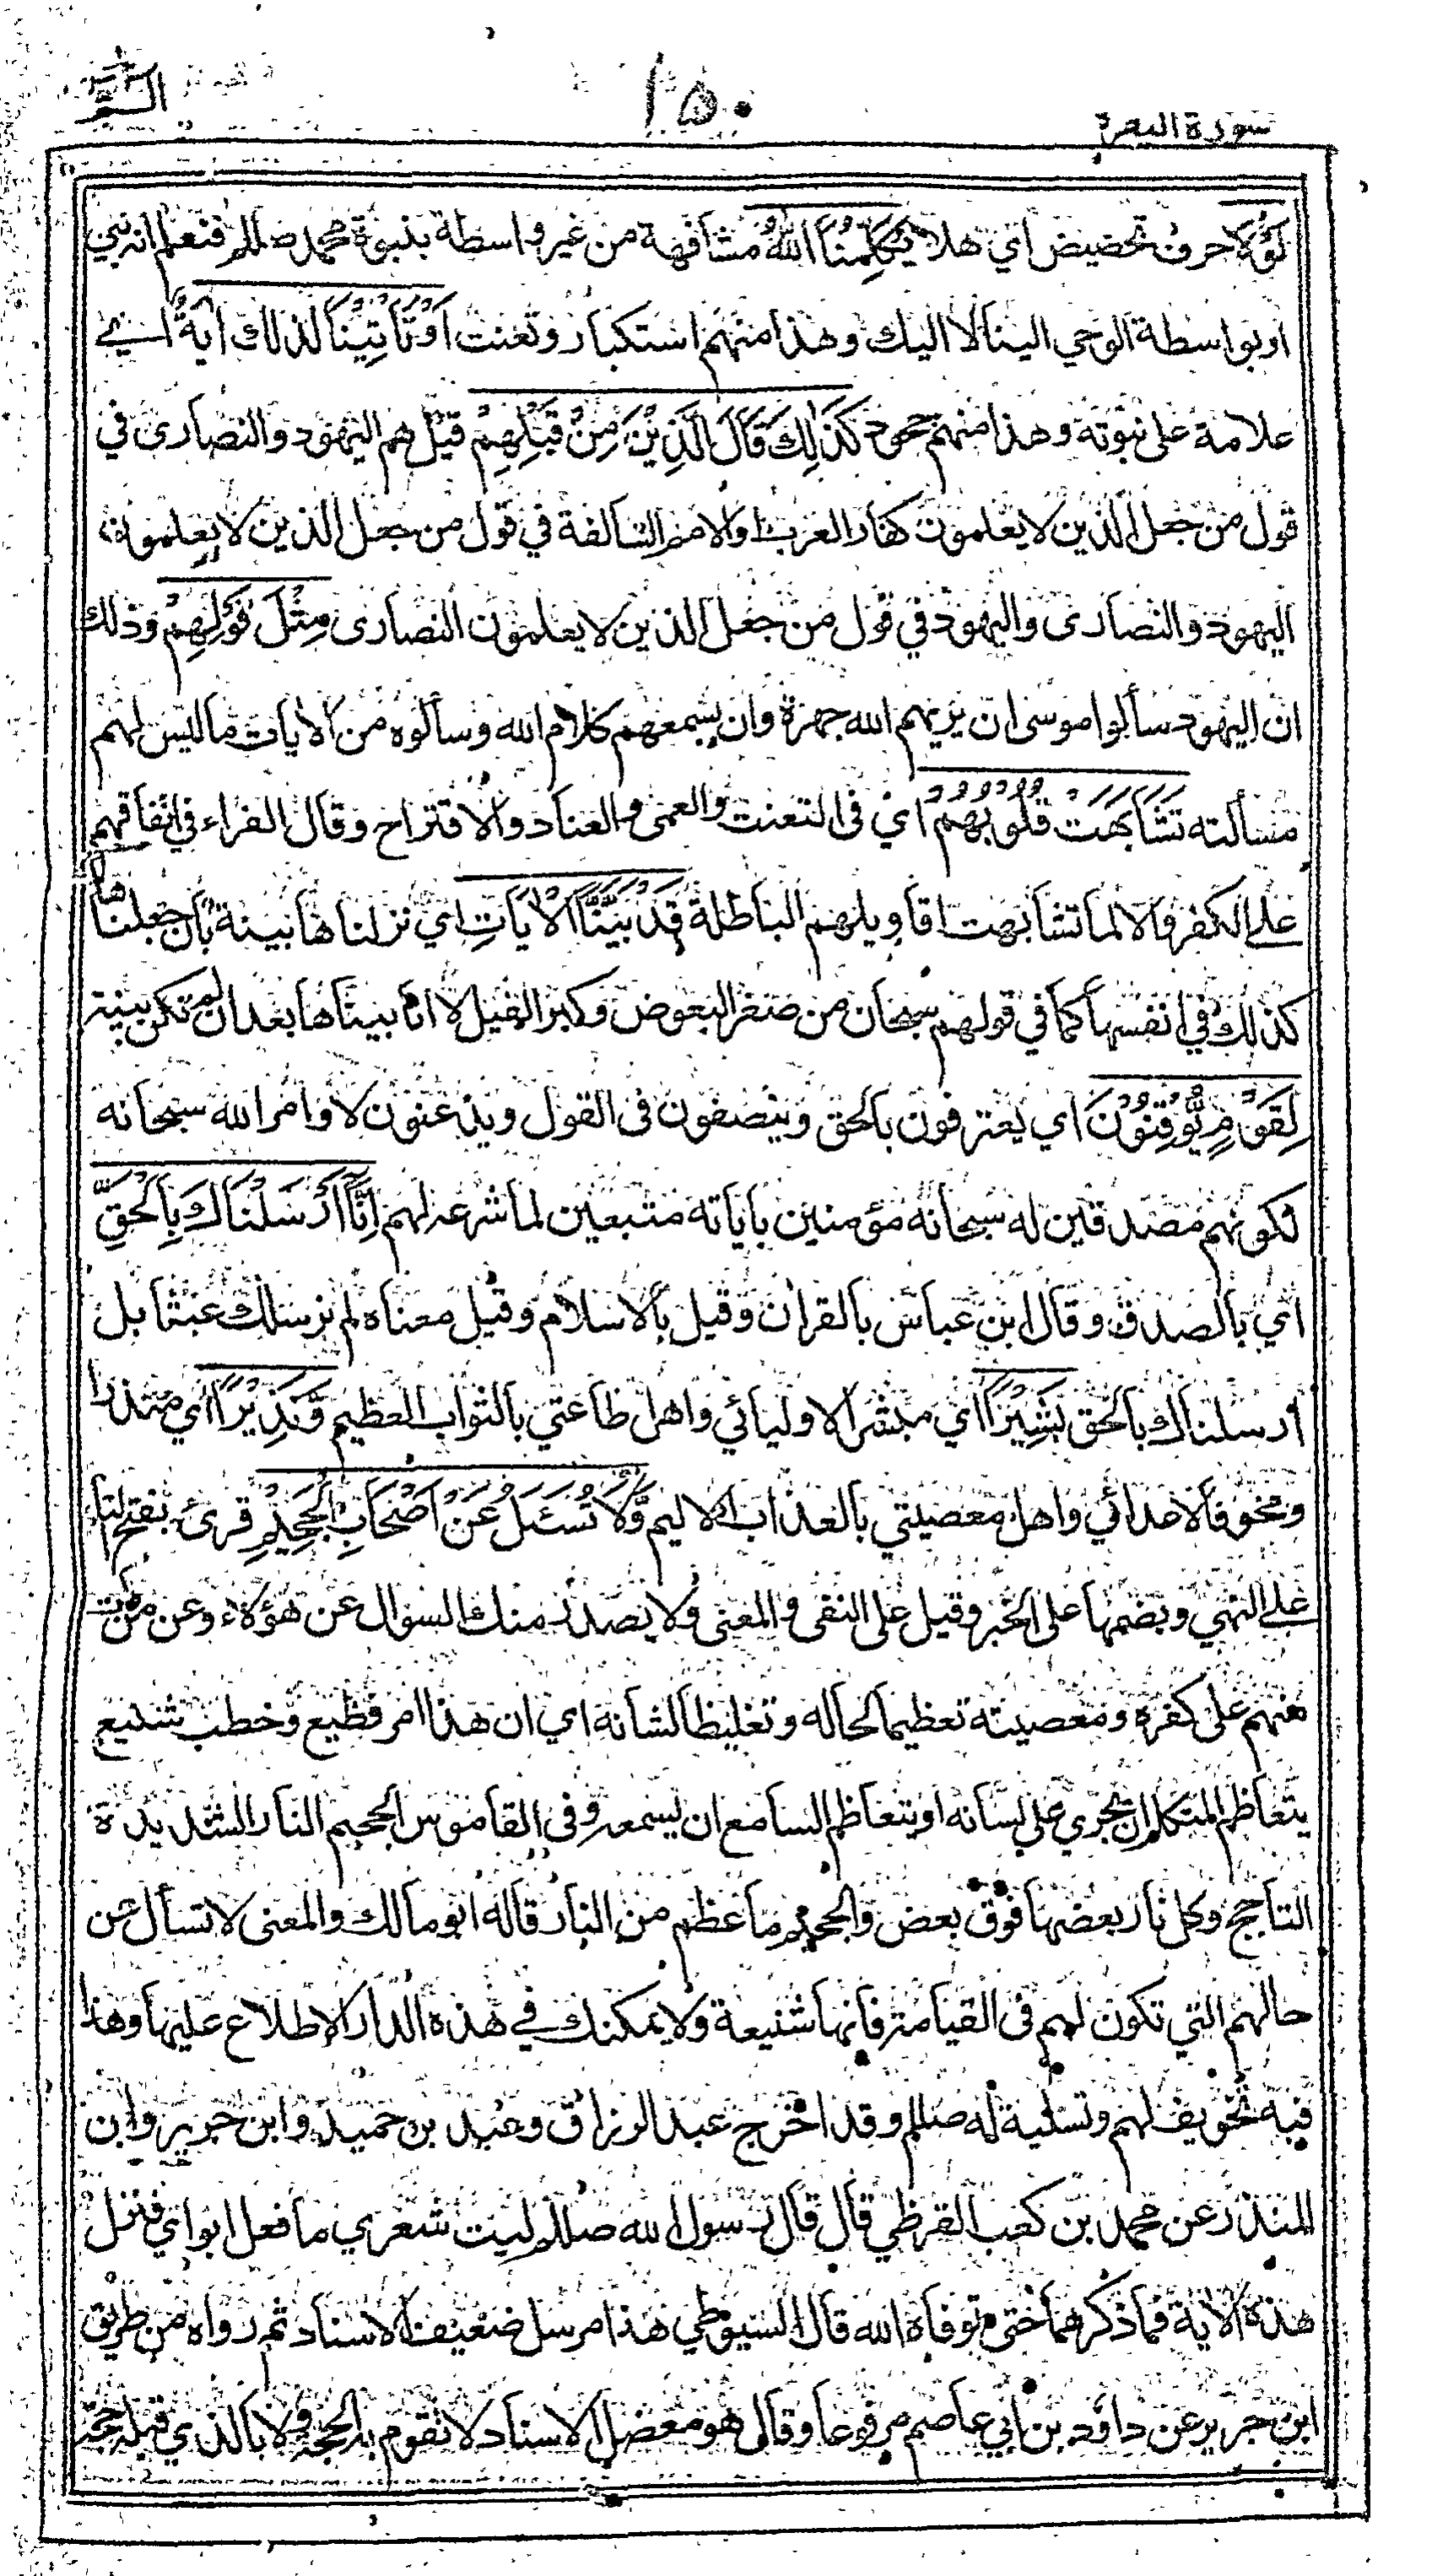 الٓمّ
١٥٠
سورة البقرة
لَوْلَا حرف تحضيض اي هلا يُكَلِّمُنَا اللّٰهُ مشافهة من غير واسطة بنبوة محمد صللم فنعلم انه نبي
او بواسطة الوحي الينا لا اليك وهذا منهم استكبار وتعنت اَوْ تَأْتِيْنَا لذلك اٰيَةٌ اي
علامة على نبوته وهذا منهم جحود كَذٰلِكَ قَالَ الَّذِيْنَ مِنْ قَبْلِهِمْ قيل هم اليهود والنصارى في
قول من جعل الذين لا يعلمون كفار العرب او الامم السالفة في قول من جعل الذين لا يعلمون
اليهود والنصارى واليهود في قول من جعل الذين لا يعلمون النصارى مِثْلَ قَوْلِهِمْ وذلك
ان اليهود سألوا موسى ان يريهم الله جهرة وان يسمعهم كلام الله وسألوه من الايات ما ليس لهم
مسألته تَشَابَهَتْ قُلُوْبُهُمْ اي في التعنت والعمى والعناد والاقتراح وقال الفراء في اتفاقهم
على الكفر والا لما تشابهت اقاويلهم الباطلة قَدْ بَيَّنَّا الْاٰيَاتِ اي نزلناها بينة بأن جعلناها
كذلك في انفسها كما في قولهم سبحان من صغر البعوض وكبر الفيل لا انا بيناها بعد ان لم تكن بينة
لِقَوْمٍ يُّوْقِنُوْنَ اي يعترفون بالحق وينصفون في القول ويذعنون لاوامر الله سبحانه
لكونهم مصدقين له سبحانه مؤمنين باياته متبعين لما شرعه لهم اِنَّا اَرْسَلْنَاكَ بِالْحَقِّ
اي بالصدق وقال ابن عباس بالقران وقيل بالاسلام وقيل معناه لم نرسلك عبثا بل
ارسلناك بالحق بَشِيْرًا اي مبشرا لاوليائي واهل طاعتي بالثواب العظيم وَّنَذِيْرًا اي منذرا
ومخوفا لاعدائي واهل معصيتي بالعذاب الاليم وَّلَا تُسْئَلُ عَنْ اَصْحَابِ الْجَحِيْمِ قرئ بفتح التاء
على النهي وبضمها على الخبر وقيل على النفي والمعنى ولا يصدر منك السؤال عن هؤلاء وعن من مات
منهم على كفره ومعصيته تعظيما لحاله وتغليظا لشانه اي ان هذا امر فظيع وخطب شنيع
يتعاظم المتكلم ان يجري على لسانه او يتعاظم السامع ان يسمعه وفي القاموس الجحيم النار الشديدة
التاجج وكل نار بعضها فوق بعض والجحيم ما عظم من النار قاله ابو مالك والمعنى لا تسأل عن
حالهم التي تكون لهم في القيامة فانها شنيعة ولا يمكنك في هذه الدار الاطلاع عليها وهذا
فيه تخويف لهم وتسلية له صللم وقد اخرج عبد الرزاق وعبد بن حميد وابن جرير وابن
المنذر عن محمد بن كعب القرظي قال قال رسول الله صللم ليت شعري ما فعل ابواي فنزل
هذه الاية فما ذكرهما حتى توفاه الله قال السيوطي هذا مرسل ضعيف الاسناد ثم رواه من طريق
ابن جرير عن داود بن ابي عاصم مرفوعا وقال هو معضل الاسناد لا تقوم به الحجة ولا بالذي قبله حجة